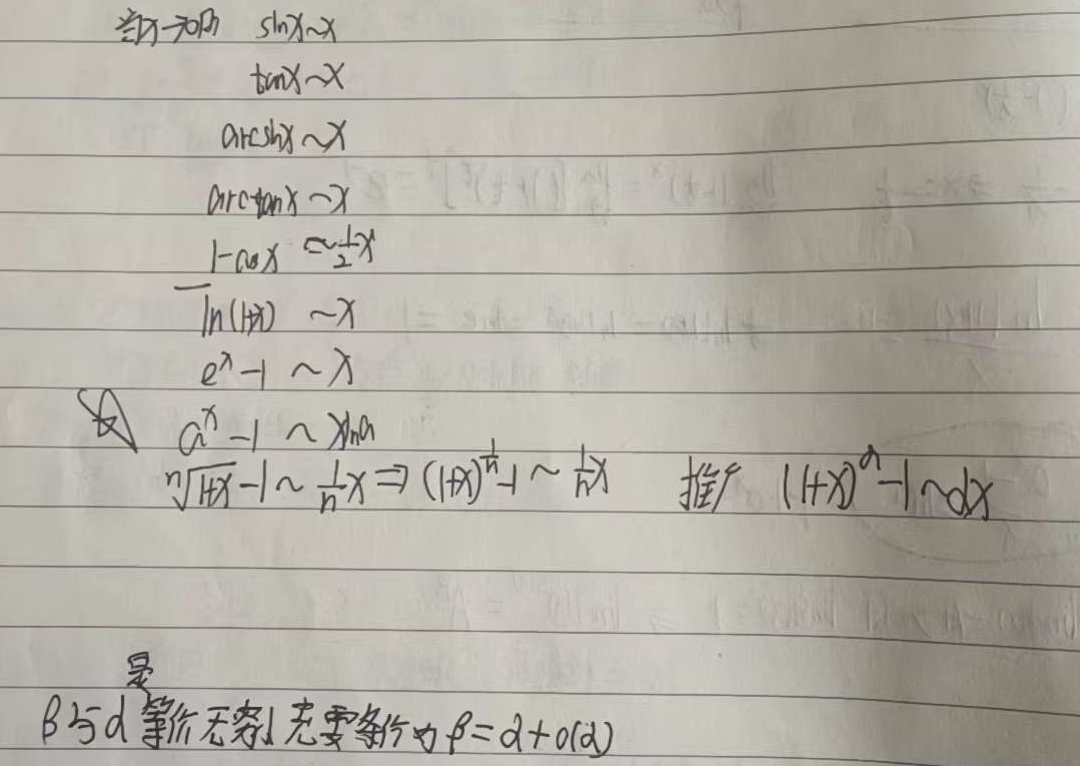 当x→0时 sinx~x
tanx~x
arcsinx~x
arctanx~x
1-cosx ~ 1/2 x²
ln(1+x) ~x
e^x -1 ~ x
☆ a^x -1 ~ xlna
ⁿ√(1+x) -1 ~ 1/n x ⇒ (1+x)^(1/n) -1 ~ 1/n x 推广 (1+x)^α -1 ~αx
是
β与α等价无穷小充要条件为β=α+o(α)